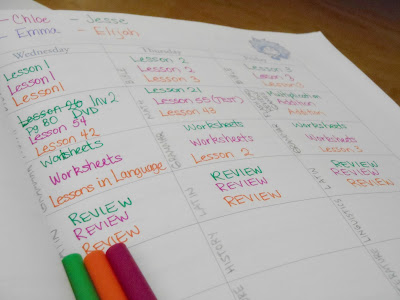 - Chloe - Jesse
- Emma - Elijah
Wednesday
Lesson 1
Lesson 1
Lesson 1
Lesson 26 Inv 2
Pg 80 DVD
Lesson 54
Lesson 42
Worksheets
Lessons in Language
REVIEW
REVIEW
REVIEW
Thursday
Lesson 2
Lesson 2
Lesson 3
Lesson 21
Lesson 55 (Test)
Lesson 43
Worksheets
Worksheets
Lesson 2
LATIN
REVIEW
REVIEW
REVIEW
HISTORY
Lesson 3
Lesson 3
Addition
Addition
Worksheets
Worksheets
Lesson 3
LATIN
REVIEW
REVIEW
REVIEW
LINGUISTICS